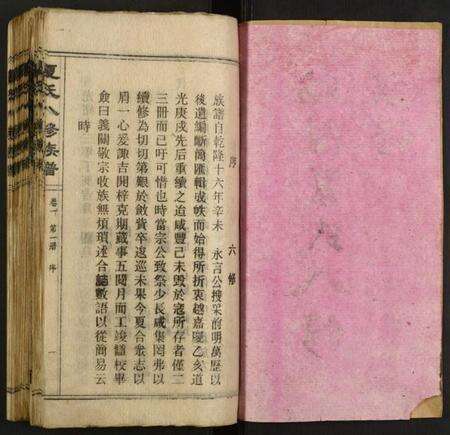 六修
序
族譜自乾隆十六年辛未　永言公搜采前明萬歷以
後遺編斷簡匯輯成帙而始得所折衷越嘉慶乙亥道
光庚戌先后重續之迨咸豐己未毀於寇所存者僅二
三冊而已吁可惜也時當宗公致祭少長咸集罔弗以
續修為切切第艱於斂貲卒逡巡未果今夏合衆志以
肩一心爰諏吉開梓克期蕆事五閱月而工竣讎校畢
僉曰義關敬宗收族無煩瑣述合誌數語以從簡易云
時
夏氏八修族譜
卷一　第一譜　序
一